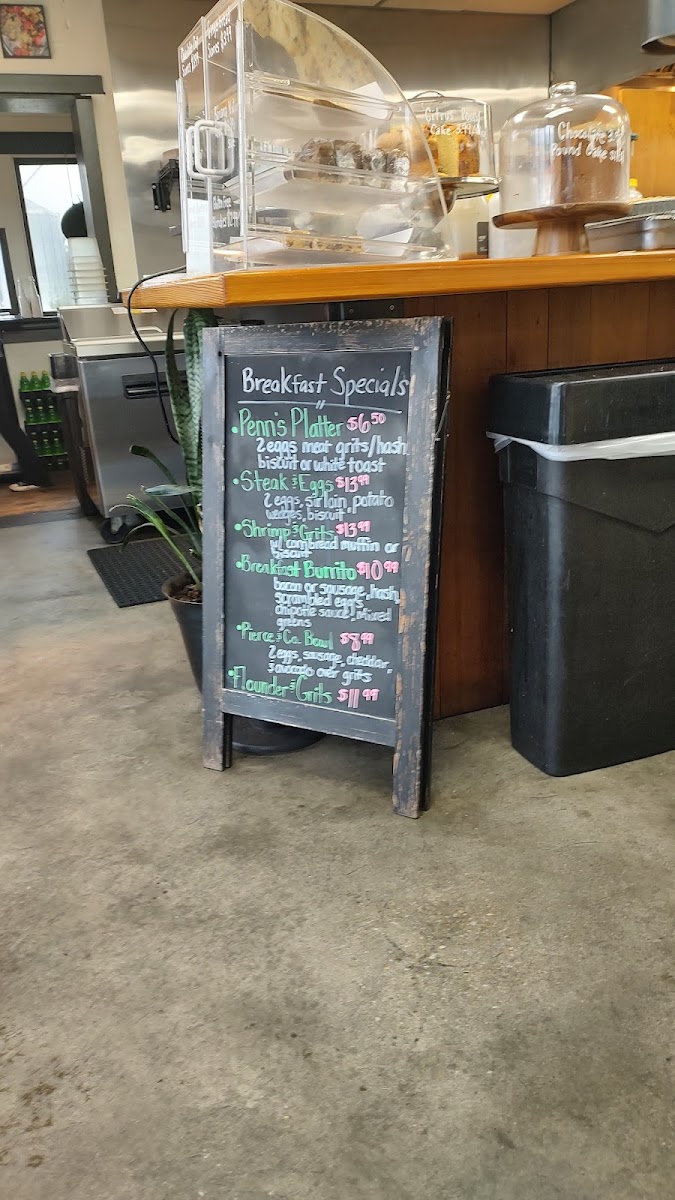 Citrus Pound
Cake 3.99
Chocolate 3.99
Pound Cake
Breakfast Specials
•Penn's Platter $6.50
2 eggs meat grits/hash
biscuit or white toast
•Steak & Eggs $13.99
2 eggs, sirloin, potato
wedges, biscuit
•Shrimp & Grits $13.99
w/ cornbread muffin or
biscuit
•Breakfast Burrito $10.99
bacon or sausage, hash,
scrambled eggs,
chipotle sauce, mixed
greens
•Pierce & Co. Bowl $8.99
2 eggs, sausage, cheddar,
& avocado over grits
•Flounder & Grits $11.99